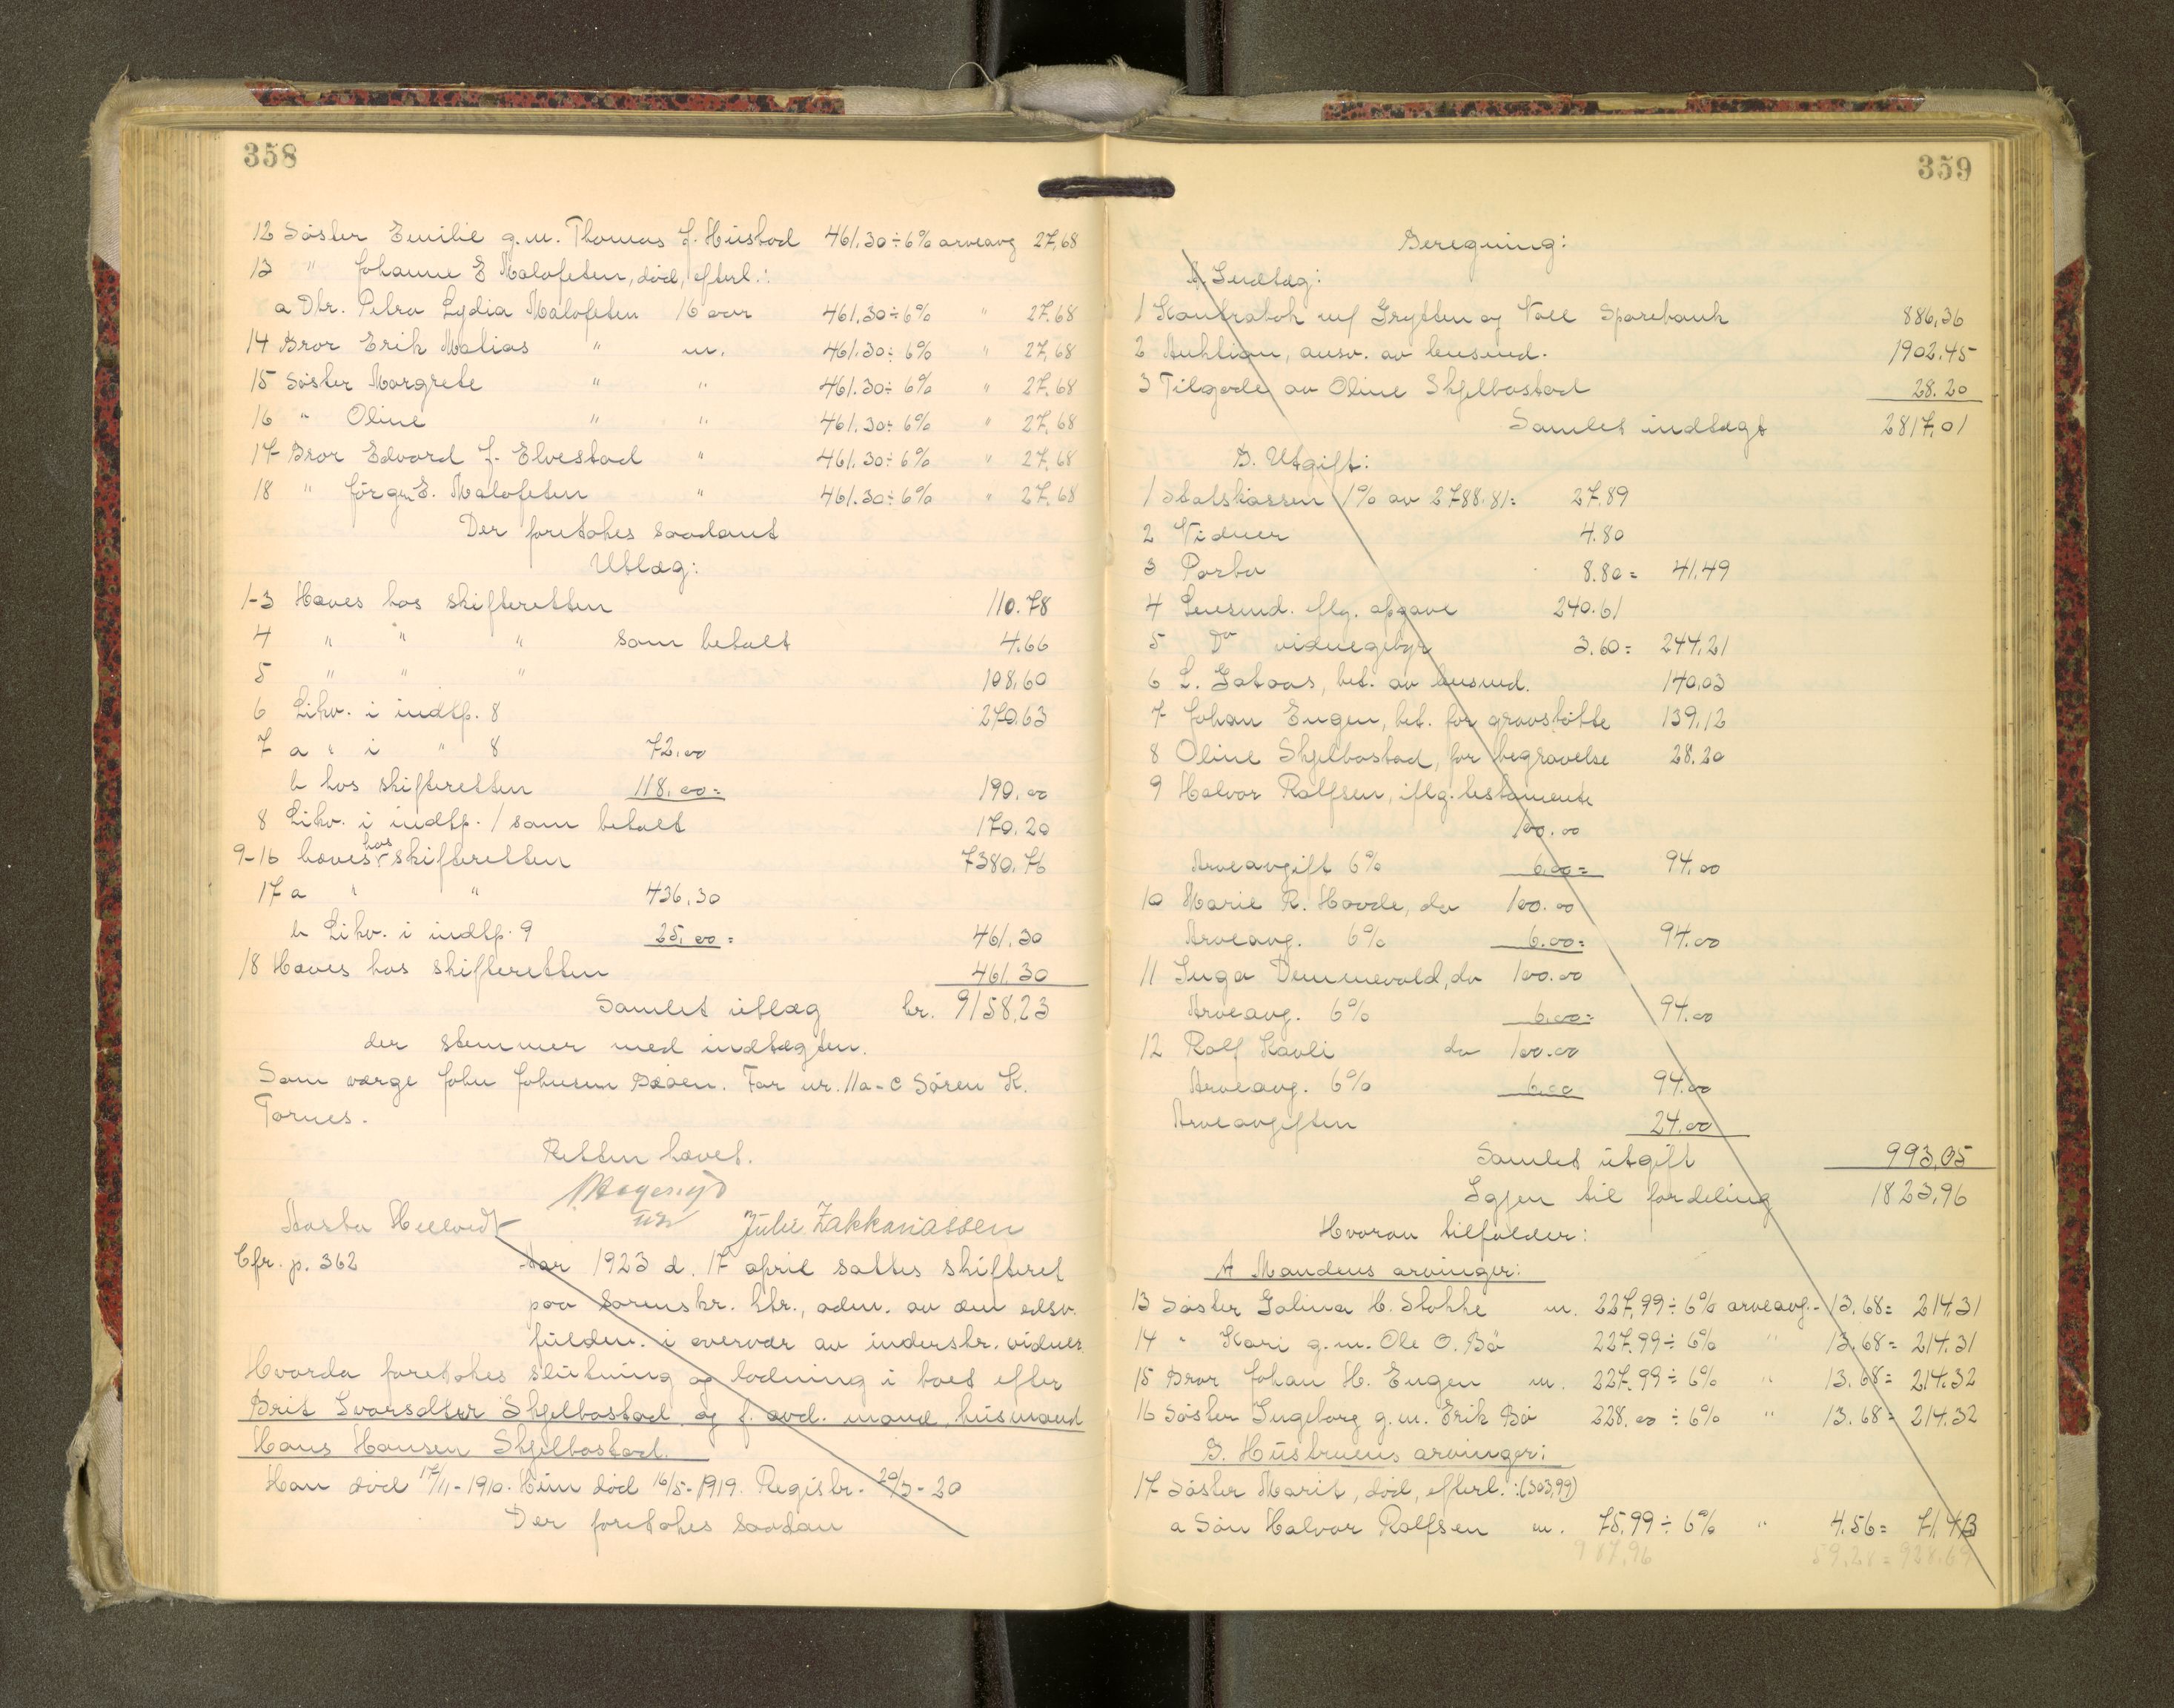 358
12 Søster Emilie g.m. Thomas J. Hustad 461.30 ÷ 6% arveavg 27,68
13 " Johanne E Malofeten, død, efterl.:
a Dtr. Petra Lydia Malofeten 16 aar 461.30 ÷ 6% " 27.68
14 Bror Erik Malias " m. 461.30 ÷ 6% " 27,68
15 Søster Margrete " " 461.30 ÷ 6% " 27.68
16 " Oline " " 461.30 ÷ 6% " 27.68
17 Bror Edvard J. Elvestad " 461.30 ÷ 6% " 27.68
18 " Jørgen E. Malofeten " 461.30 ÷ 6% " 27.68
Der foretokes saadant
Utlæg:
1-3 Haves hos skifteretten 110.78
4 " " " som betalt 4.66
5 " " " 108,60
6 Likv. i indtp. 8 270.63
7 a " i " 8 72.00
b hos skifteretten 118.00 = 190.00
8 Likv. i indtp. 1 som betalt 170.20
9-16 haves hos skifteretten 7380.76
17 a " " 436.30
b Likv. i indtp. 9 25.00 = 461.30
18 Haves hos skifteretten 461.30
Samlet utlæg kr. 9158,23
der stemmer med indtægten.
Som værge John Johnsen Bøen. For nr. 11a-c Søren K.
Tornes.
Retten hævet.
Aasta Hellvedt Julie Zakkariassen
Cfr. p. 362 Aar 1923 d. 17 april sattes skifteret
paa sorenskr. ktr., adm. av den edsv.
fuldm. i overvær av underskr. vidner.
Hvorda foretokes slutning og lodning i boet efter
Brit Ivarsdtter Skjelbostad og f. avd. mand, husmand
Hans Hansen Skjelbostad.
Han død 17/11-1910. Hun død 16/5-1919. Registr. 20/3-20
Der foretokes saadan
359
Beregning:
A. Indtæg:
1 Kontrabok m/ Grytten og Voll Sparebank 886,36
2 Auktion, ansv. av lensmd. 1902.45
3 Tilgode av Oline Skjelbostad 28.20
Samlet indtægt 2817,01
B. Utgift:
1 Statskassen 1% av 2788.81 = 27.89
2 Vidner 4.80
3 Porto 8.80 = 41.49
4 Lensmd. iflg. opgave 240.61
5 Do vidnegebyr 3.60 = 244.21
6 L. Gataas, bet. av lensmd. 140,03
7 Johan Engen, bet. for gravstøtte 139.12
8 Oline Skjelbostad, for begravelse 28.20
9 Halvor Rolfsen, iflg. testamente
100.00
Arveavgift 6% 6.00 = 94.00
10 Marie R. Hovde, do 100.00
Arveavg. 6% 6.00 = 94.00
11 Inga Vennevold, do 100.00
Arveavg. 6% 6.00 = 94.00
12 Rolf Kavli do 100.00
Arveavg. 6% 6.00 94.00
Arveavgiften 24.00
Samlet utgift 993,05
Igjen til fordeling 1823,96
Hvorav tilfalder:
A Mandens arvinger:
13 Søster Galina H. Stokke m. 227,99 ÷ 6% arveavg. - 13.68 = 214.31
14 " Kari g.m. Ole O. Bø 227.99 ÷ 6% " 13.68 = 214.31
15 Bror Johan H. Engen m. 227.99 ÷ 6% " 13.68 = 214.32
16 Søster Ingeborg g.m. Erik Bø 228.00 ÷ 6% " 13.68 = 214.32
B. Hustruens arvinger:
17 Søster Marit, død, efterl.: (303,99)
a Søn Halvor Rolfsen m. 75.99 ÷ 6% " 4.56 = 71.43
987,96 59,28 = 928.69